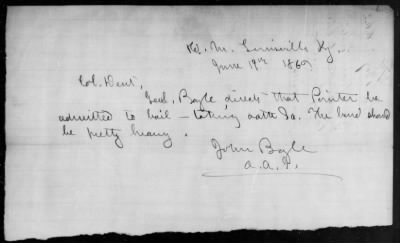 Louisville Ky.
June 19th 186
Col. Dent,
Genl. Boyle, directs that Pointer be
admitted to bail — taking oath &c. The bond should
be pretty heavy.
John Boyle
A. A. G.